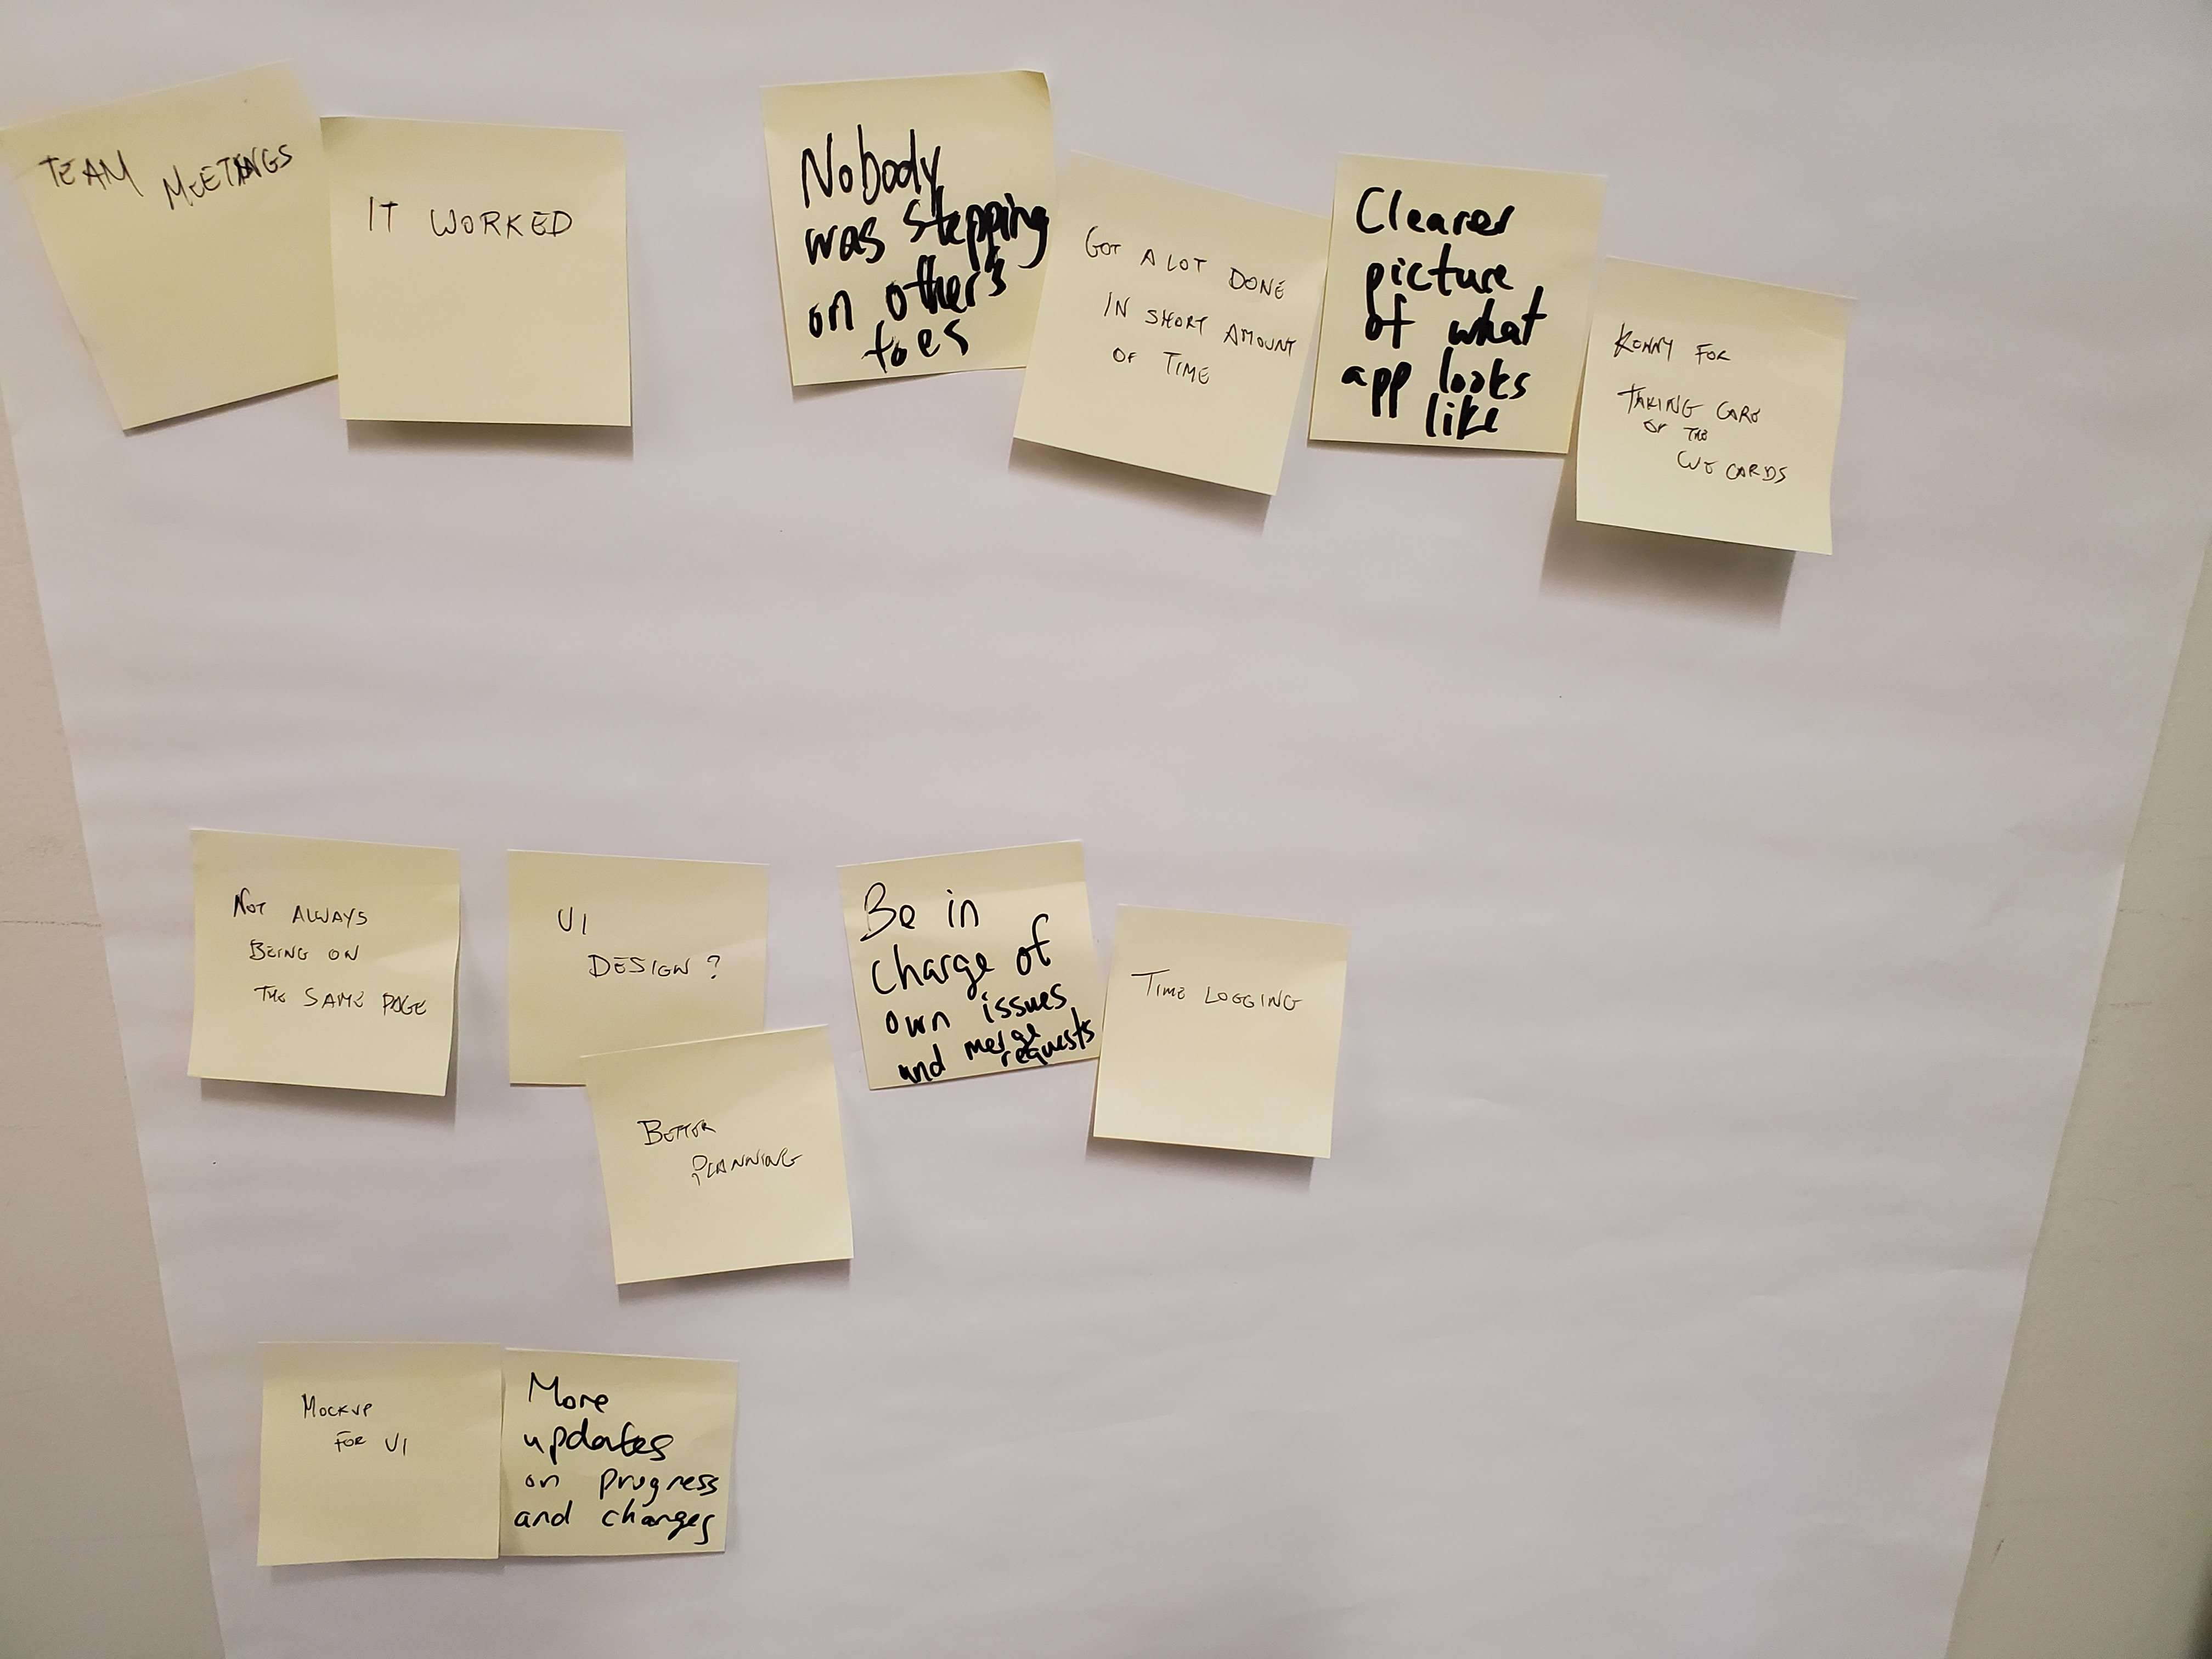 TEAM MEETINGS
IT WORKED
Nobody
was stepping
on other's
toes
GOT A LOT DONE
IN SHORT AMOUNT
OF TIME
Clearer
picture
of what
app looks
like
FOR
TAKING CARE
OF THE
CARDS
NOT ALWAYS
BEING ON
THE SAME PAGE
UI
DESIGN?
BETTER
PLANNING
Be in
charge of
own issues
and merge
requests
TIME LOGGING
MOCKUP
FOR UI
More
updates
on progress
and changes